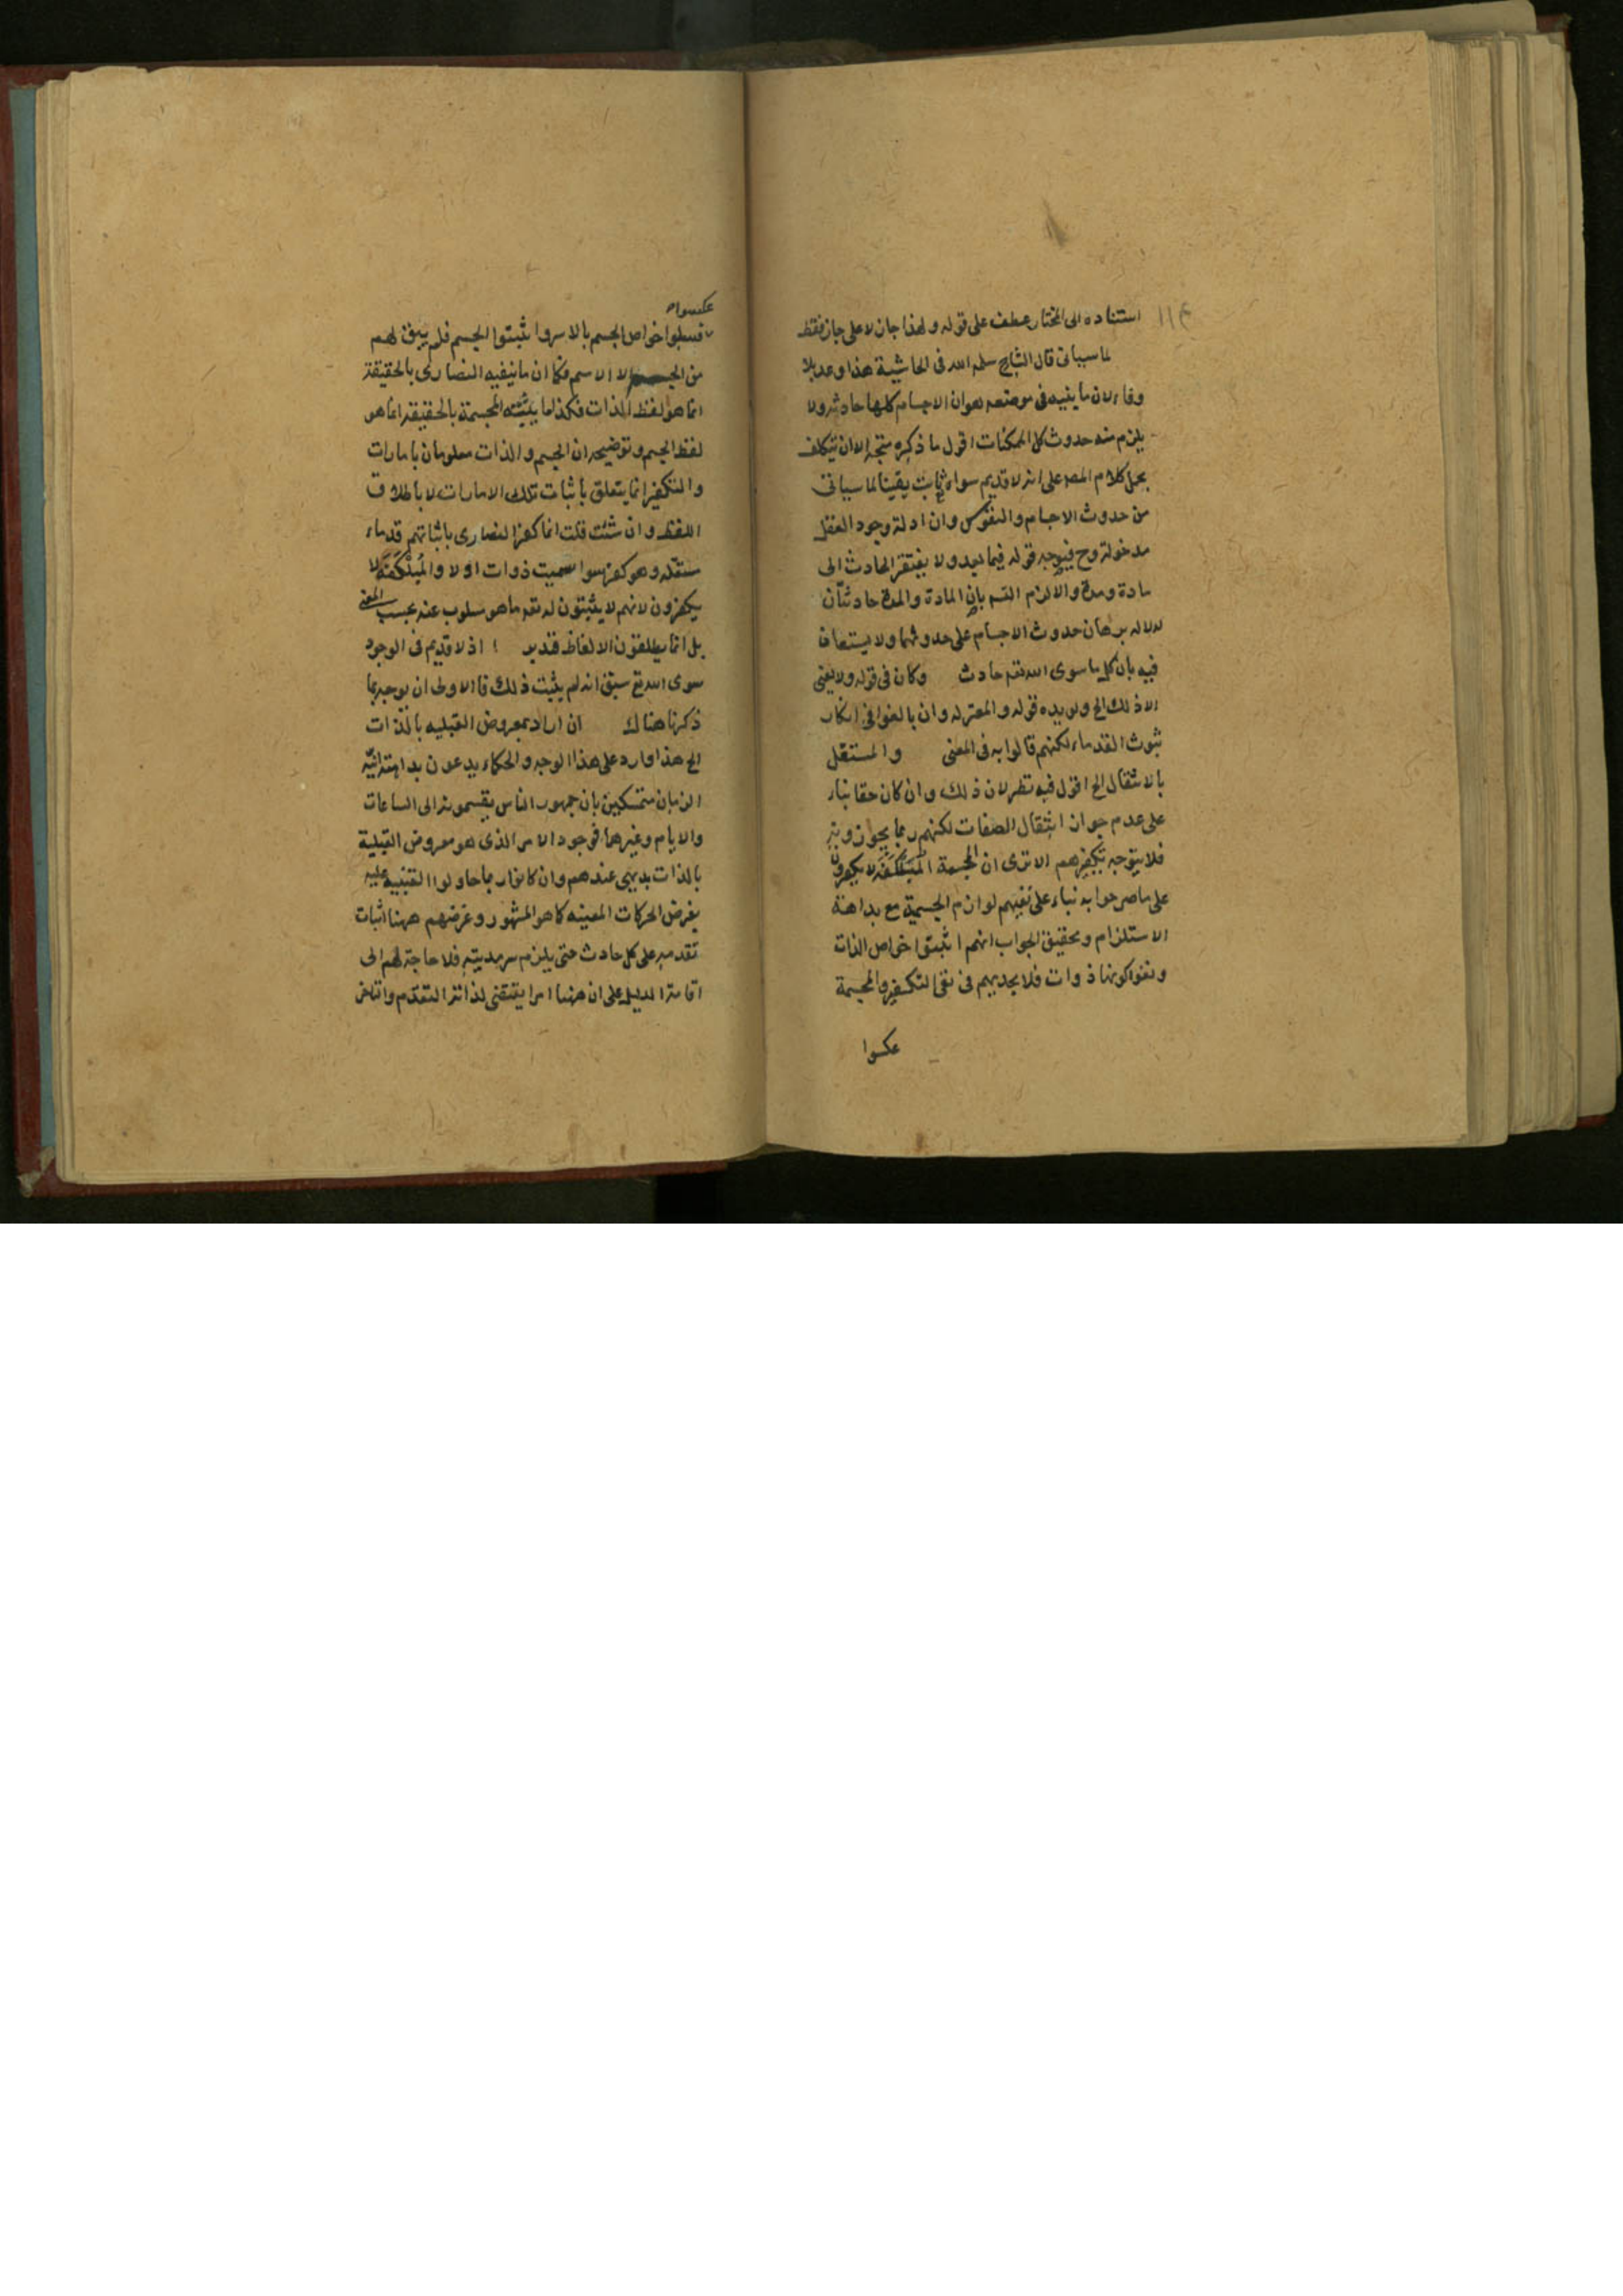 استناده الى المختار عطف على قوله ولهذا جاز لا على جاز فقط
لما سيأتى قال الشارح سلمه الله فى الحاشية هذا وعد بلا
وفاء لان ما يثبته فى موضعه هو ان الاجسام كلها حادثه ولا
يلزم منه حدوث كل الممكنات اقول ما ذكره متجه الا ان يتكلف
بحمل كلام المص على انه لا قديم سواه ثابت يقينا لما سيأتى
من حدوث الاجسام والنفوس وان ادلة وجود العقل
مدخولة وح فيوجه قوله فيما بعد ولا يفتقر الحادث الى
مادة ومدة والا لزم التسم بان المادة والمدة حادثتان
لدلاله برهان حدوث الاجسام على حدوثهما ولا يستعان
فيه بان كل ما سوى الله تعه حادث وكان فى قوله ولا يعنى
الا ذلك الخ ويؤيده قوله والمعتزله وان بالغوا فى انكار
ثبوت القدماء لكنهم قالوا به فى المعنى والمستقل
بالانتقال الخ اقول فيه نظر لان ذلك وان كان حقا بناء
على عدم جواز انتقال الصفات لكنهم ربما يجوزونه
فلا يتوجه تكفيرهم الا ترى ان المجسمة المُتَبَلْكَفَة لا يكفرون
على ما صرحوا به بناء على نفيهم لوازم الجسمية مع بداهة
الاستلزام وتحقيق الجواب انهم اثبتوا خواص الذات
ونفوا كونها ذوات فلا يجديهم فى نفى التكفير والمجسمة
عكسوا
عكسوا
فسلبوا خواص الجسم بالاسر واثبتوا الجسم فلم يبق لهم
من الجسم الا الاسم فكما ان ما نيفيه النصارى بالحقيقة
انما هو لفظ الذات فكذا ما يثبته المجسمة بالحقيقه انما هو
لفظ الجسم وتوضيحه ان الجسم والذات معلومان بامارات
والتكفير انما يتعلق باثبات تلك الامارات لا باطلاق
اللفظ وان شئت قلت انما كفر النصارى باثباتهم قدماء
مستقله وهو كفر سواء سميت ذوات اولا والمُبَلْكَفَة لا
يكفرون لانهم لا يثبتون له تعه ما هو مسلوب عنه بحسب المعنى
بل انما يطلقون الالفاظ فتدبر اذ لا قديم فى الوجود
سوى الله تع سبق انه لم يثبت ذلك فالاولى ان يوجه بما
ذكرنا هناك ان اراد بمعروض القبليه بالذات
الخ هذا وارد على هذا الوجه والحكماء يدعون بداهة انيّة
الزمان متمسكين بان جمهور الناس يقسمونه الى الساعات
والايام وغيرها فوجود الامر الذى هو معروض القبلية
بالذات بديهى عندهم وان كانوا ربما حاولوا التنبيه عليه
بفرض الحركات المعينه كما هو المشهور وغرضهم ههنا اثبات
تقدمه على كل حادث حتى يلزم سرمديته فلا حاجة لهم الى
اقامة الدليل على ان ههنا امرا يقتضى لذاته التقدم والتاخر